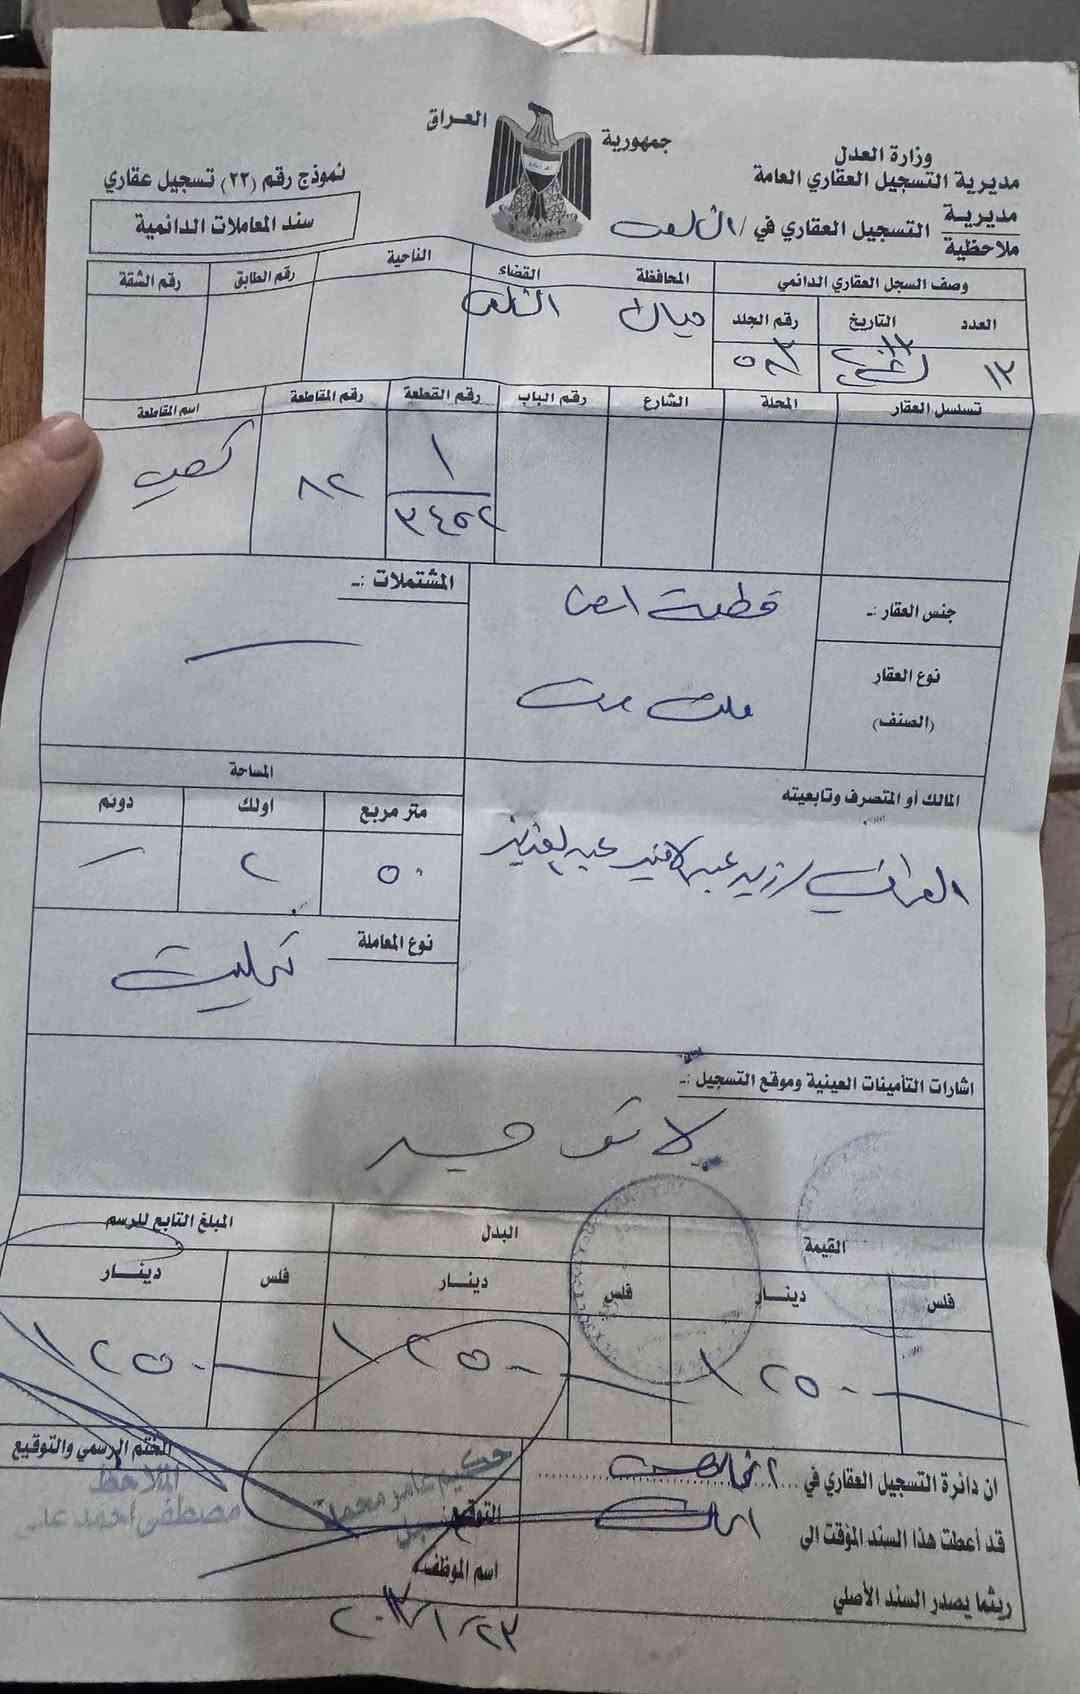 جمهورية العراق
وزارة العدل
مديرية التسجيل العقاري العامة
مديرية
ملاحظية
التسجيل العقاري في /
نموذج رقم (٢٢) تسجيل عقاري
سند المعاملات الدائمية
وصف السجل العقاري الدائمي
المحافظة
القضاء
الناحية
رقم الطابق
رقم الشقة
العدد
التاريخ
رقم الجلد
ميسان
١٢
تسلسل العقار
المحلة
الشارع
رقم الباب
رقم القطعة
رقم المقاطعة
اسم المقاطعة
١
٣٤٥٢
٨٢
جنس العقار :ـ
قطعة ارض
المشتملات :ـ
نوع العقار
(الصنف)
ملك صرف
المالك أو المتصرف وتابعيته
العراقي / زيد عبد الامير عبد العزيز
المساحة
متر مربع
اولك
دونم
٥٠
٢
نوع المعاملة
اشارات التأمينات العينية وموقع التسجيل :ـ
لا توجد
القيمة
البدل
المبلغ التابع للرسم
فلس
دينــار
فلس
دينــار
فلس
دينــار
١٢٥٠
١٢٥٠
١٢٥٠
ان دائرة التسجيل العقاري في
قد أعطت هذا السند المؤقت الى
ريثما يصدر السند الأصلي
الختم الرسمي والتوقيع
الملاحظ
مصطفى احمد علي
التوقيع
اسم الموظف